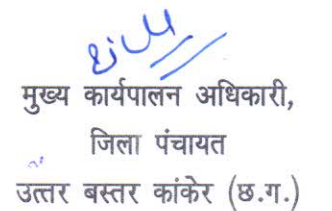 मुख्य कार्यपालन अधिकारी,
जिला पंचायत
उत्तर बस्तर कांकेर (छ.ग.)